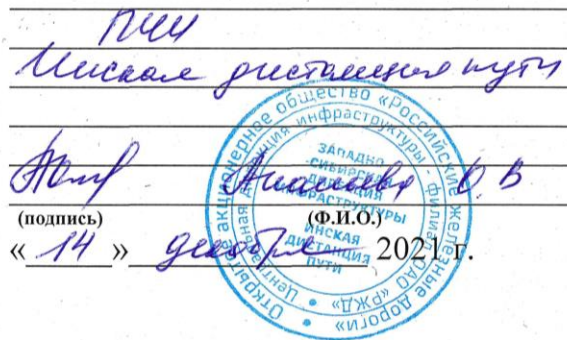 ПЧИ
Инская дистанция пути
О.В
(подпись) (Ф.И.О.)
« 14 » декабря 2021 г.
Открытое акционерное общество «Российские железные дороги»
Центральная дирекция инфраструктуры - филиал ОАО «РЖД»
ЗАПАДНО-
СИБИРСКАЯ
ДИРЕКЦИЯ
ИНФРАСТРУКТУРЫ
ИНСКАЯ
ДИСТАНЦИЯ
ПУТИ